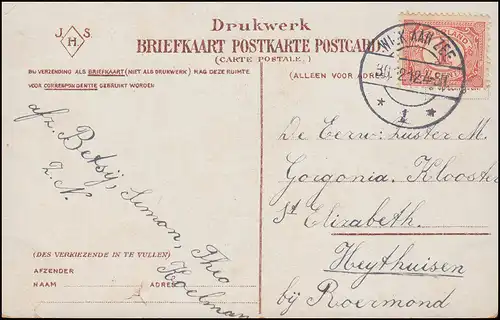 Drukwerk
J. H S.
BRIEFKAART POSTKARTE POSTCARD
(CARTE POSTALE.)
BIJ VERZENDING ALS BRIEFKAART (NIET ALS DRUKWERK) MAG DEZE RUIMTE
VOOR CORRESPONDENTIE GEBRUIKT WORDEN
(ALLEEN VOOR ADRES
WIJK AAN ZEE
1
afz. Betsij, Simon, Theo
Z. N. Koelman
De Eerw: Zuster M.
Gorgonia Klooster
St Elizabeth.
Heythuisen
bij Roermond
(DES VERKIEZENDE IN TE VULLEN)
AFZENDER
NAAM ADRES